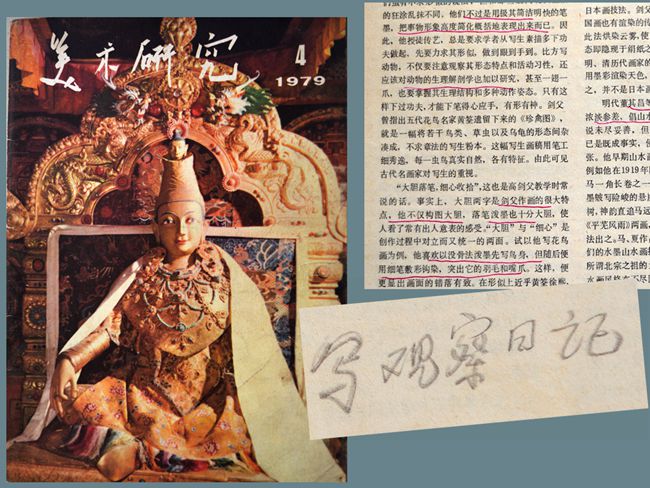 美术研究
4
1979
的狂涂乱抹不同，他们不过是用极其简洁明快的笔
墨，把事物形象高度简化概括地表现出来而已。因
此，他授徒传艺，总是要求学者从写生素描多下功
夫做起，先要力求其形似，做到眼到手到。比方写
动物，不仅要注意观察其形态特点和活动习性，还
应该对动物的生理解剖学也加以研究，甚至一翅一
爪，也要掌握其生理结构和多种动作姿态。只有这
样下过功夫，才能下笔得心应手，有形有神。剑父
曾指出五代花鸟名家黄筌遗留下来的《珍禽图》，
就是一幅将若干鸟类、草虫以及乌龟的形态间杂
凑成，不求章法的写生粉本。这幅写生画稿用笔工
细秀逸，每一虫鸟真实自然，各有特征。由此可见
古代名画家对写生的重视。
“大胆落笔，细心收拾”，这也是高剑父教学时常
说的话。事实上，大胆两字是剑父作画的很大特
点，他不仅构图大胆，落笔泼墨也十分大胆，使
人看了常有出人意表的感受。“大胆”与“细心”是
创作过程中对立而又统一的两面。试以他写花鸟
画为例，他喜欢以没骨法泼墨先写鸟身，但随后便
用细笔敷彩钩染，突出它的羽毛和嘴爪。这样，便
更显出画面的错落有致。在形似上近乎黄筌徐熙，
日本画技法。剑父
国画也有渲染的传
此法烘染云雾，使
态即隐现于绢纸之
明、清历代画家的
用墨彩渲染天色，
之，并不是日本画
明代董其昌等
浓淡参差，倡山水
说未尽妥善，但
已是既成事实，使
张。他早期山水画
例如他在1919年
马一角长卷之一
墨皴写险峻的悬
树，神韵直追马远
《平芜风雨》两画，
法出之。马、夏作
们的水墨山水画
所谓北宗之祖的
写观察日记